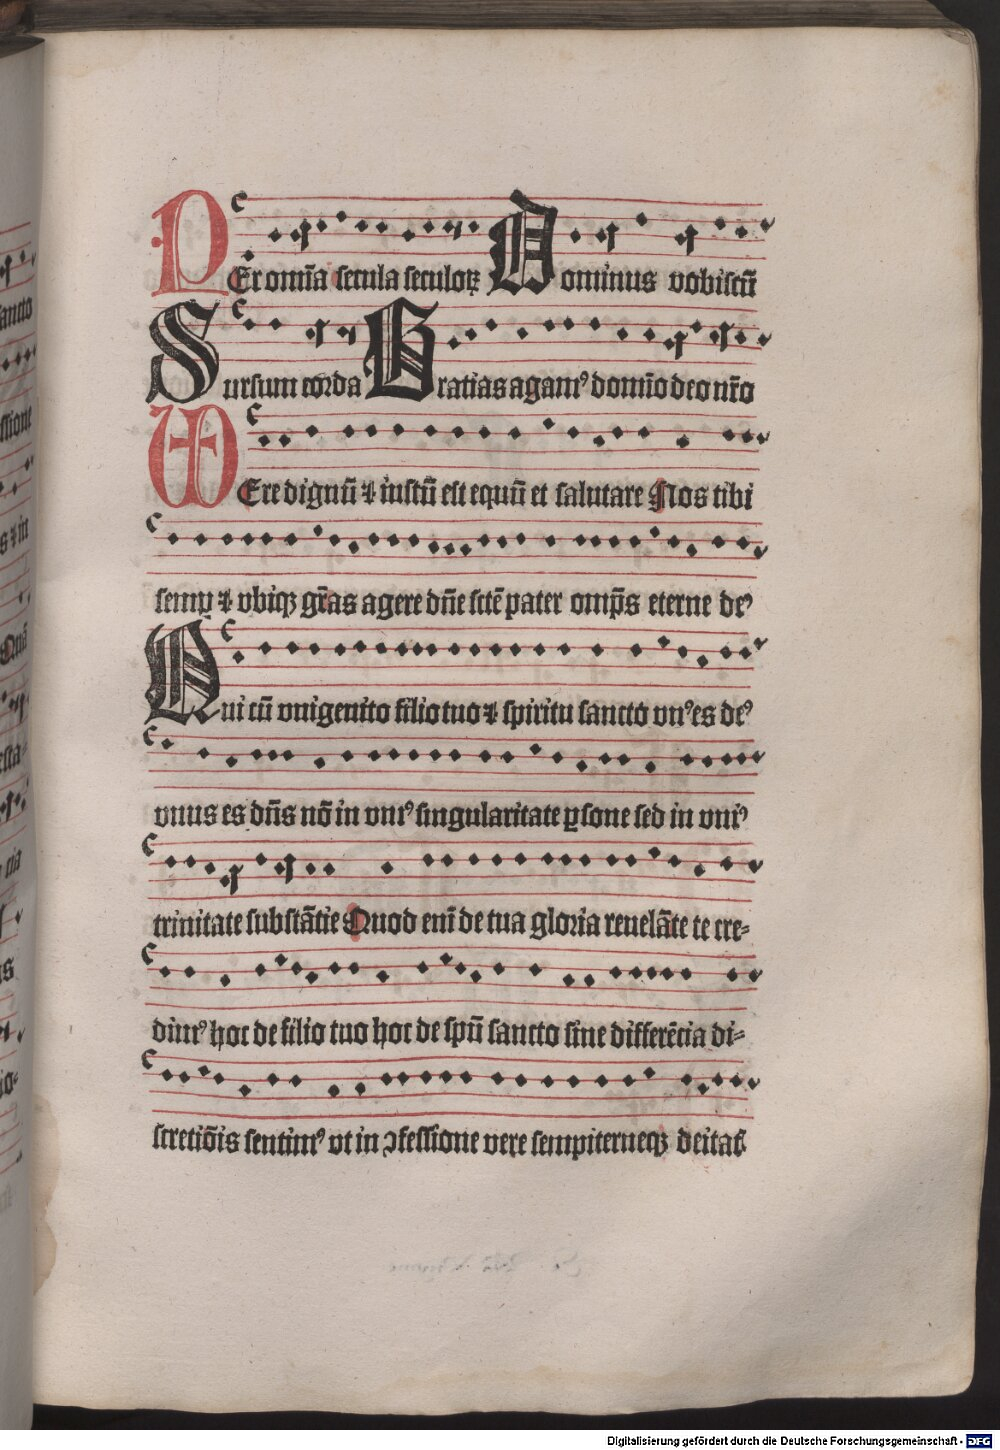 PEr om̄ia secula seculoꝝ Dominus vobiscū
Sursum corda Gratias agamꝰ domīo deo nr̄o
VEre dignū ⁊ iustū est equū et salutare Nos tibi
semꝑ ⁊ vbiqꝫ gr̄as agere dn̄e sctē pater omp̄s eterne deꝰ
Qui cū vnigenito filio tuo ⁊ spiritu sancto vnꝰ es deꝰ
vnus es dn̄s nō in vniꝰ singularitate ꝑsone sed in vniꝰ
trinitate substātie Quod enī de tua gloria reuelāte te cre⸗
dimꝰ hoc de filio tuo hoc de spū sancto sine differētia di⸗
scretiōis sentimꝰ vt in ꝯfessione vere sempiterneqꝫ deitat͛
Digitalisierung gefördert durch die Deutsche Forschungsgemeinschaft - DFG